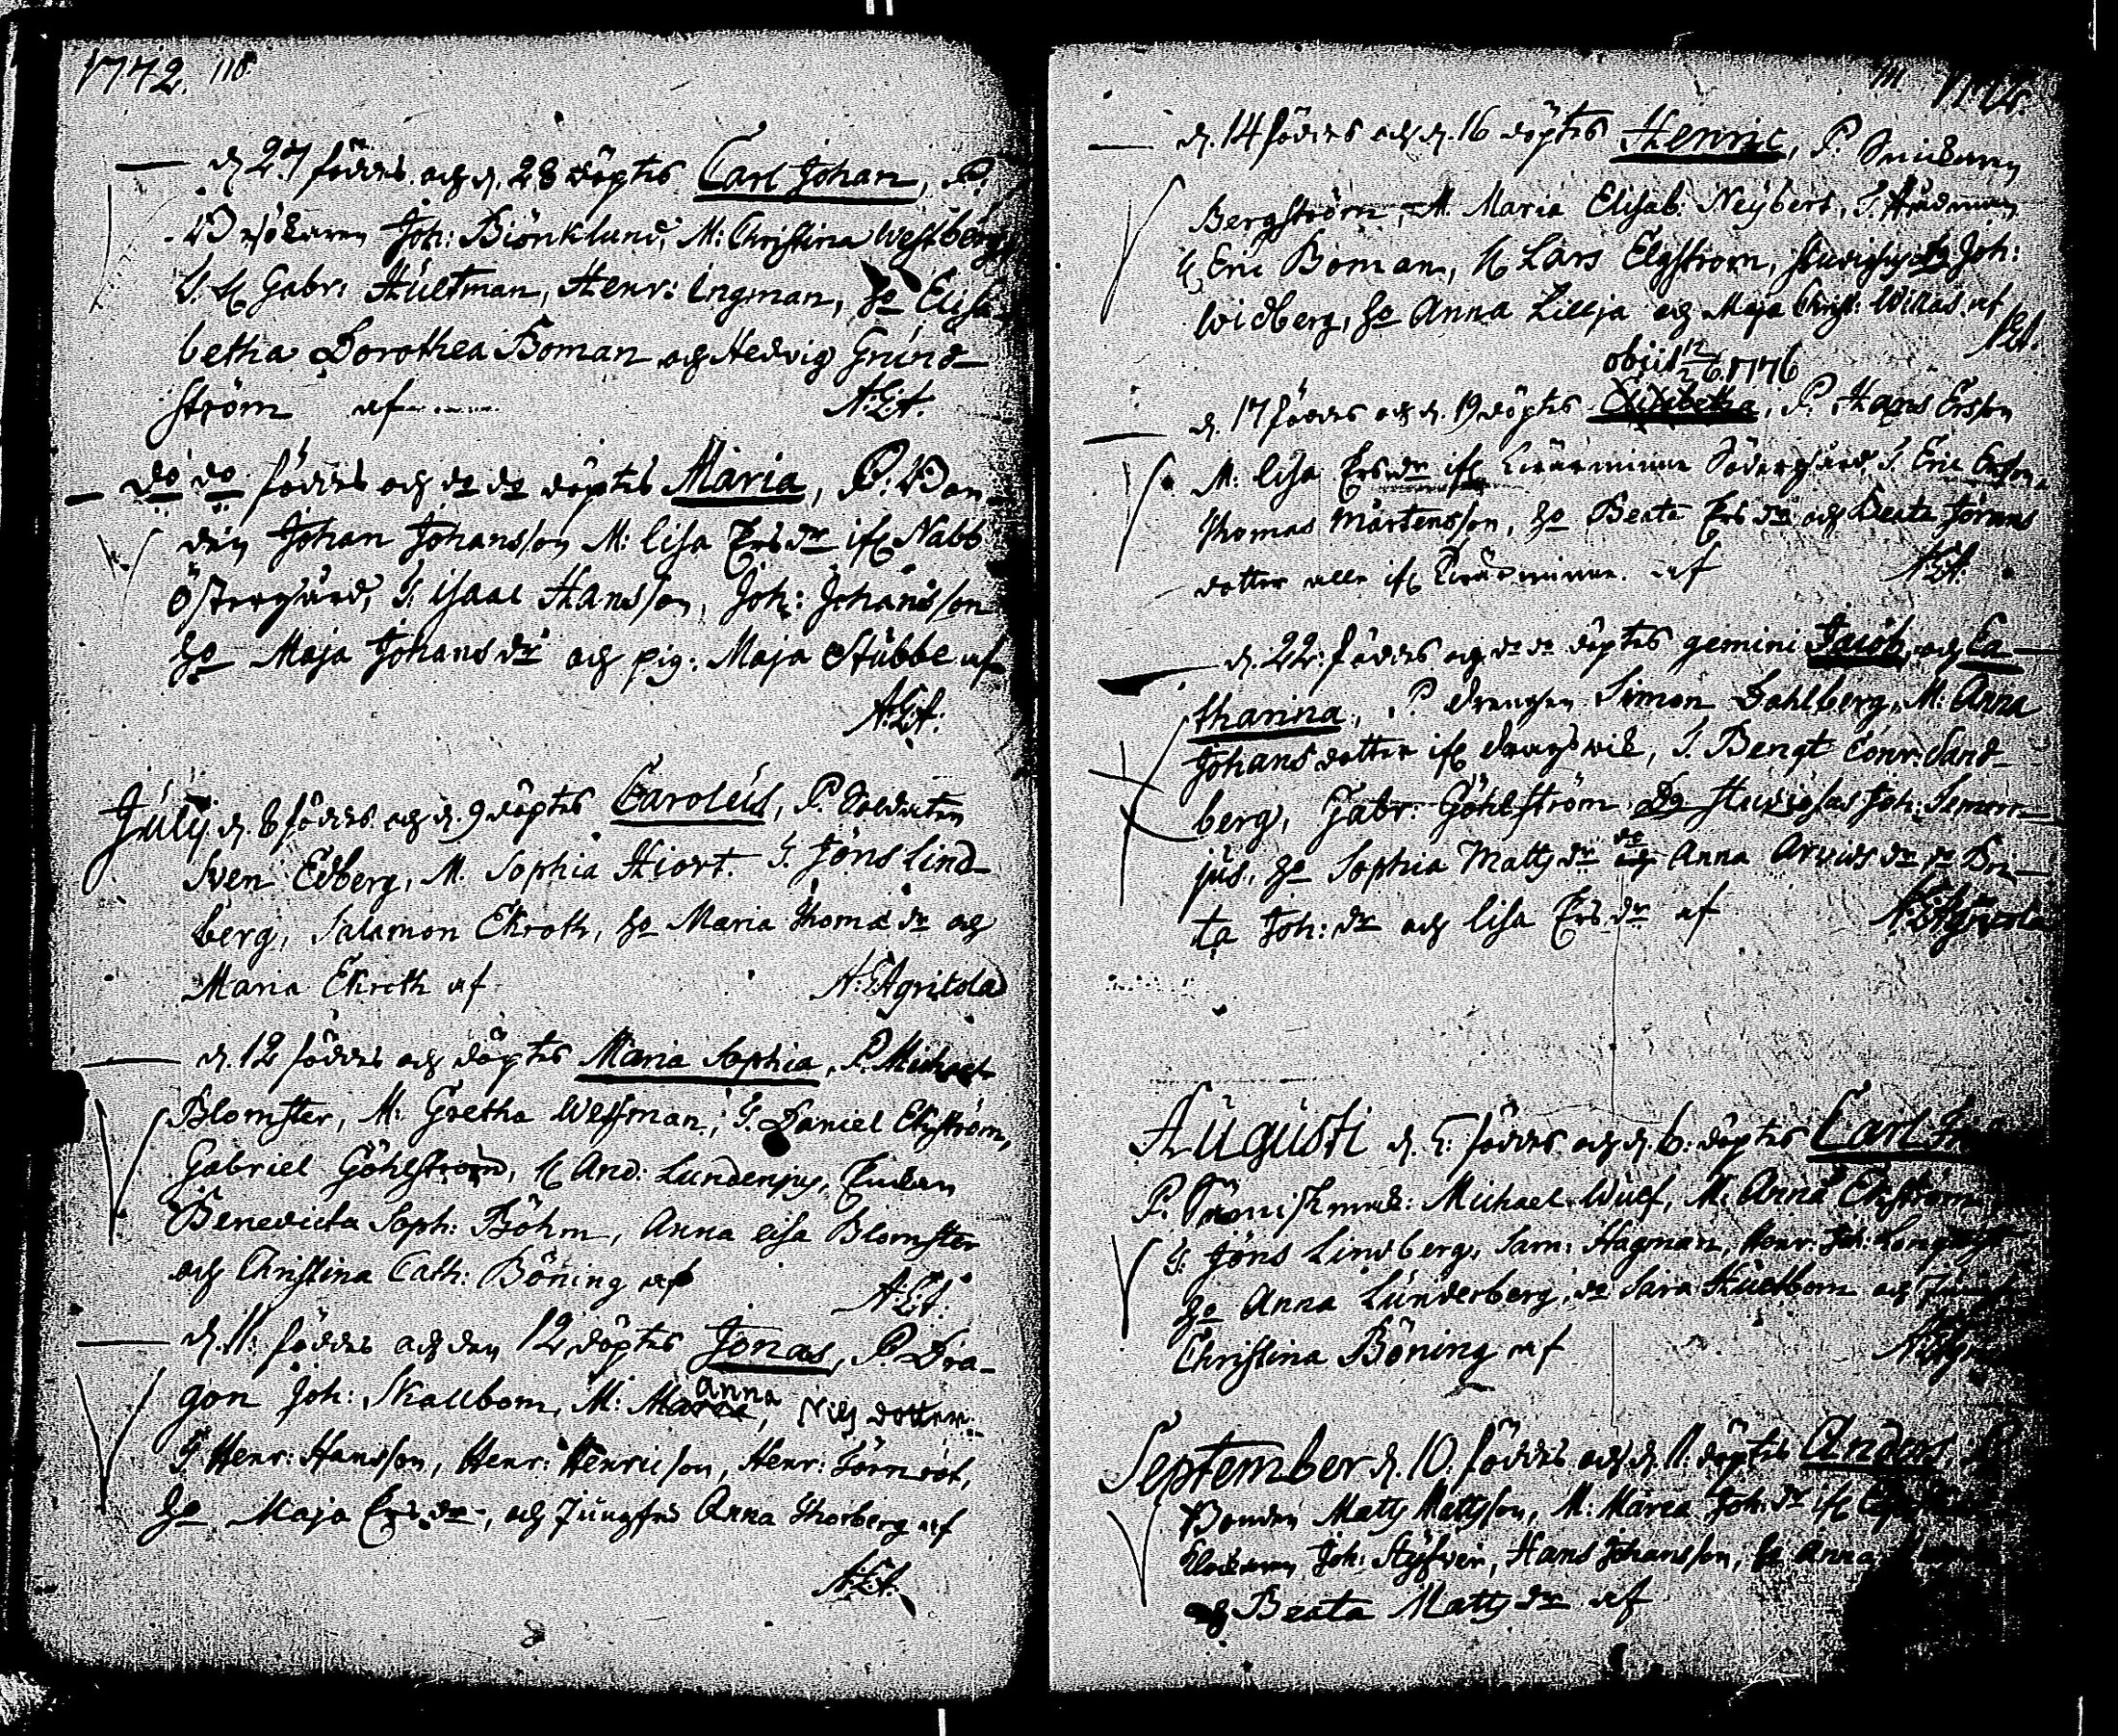 1772. 118.
d. 27 föddes och d. 28 döptes Carl Johan, P.
Besökaren Joh: Biörklund, M: Christina Westberg,
T. H Gabr: Hultman, Henr: Ingman, ho Elisa-
betha Dorothea Boman och Hedvig Grund-
ström af A.E.A.
do do föddes och do do döptes Maria, P: Bon-
den Johan Johansson M: Lisa Ersdr ifr Nabb
Östergård, T. Isaac Hansson, Joh: Johansson
ho Maja Johansdr och pig: Maja Stubbe af
A.E.A.
July d. 8 föddes och d. 9 döptes Carolus, P. Soldaten
Sven Edberg, M. Sophia Hiort. T. Jöns Lind-
berg, Salamon Ekroth, ho Maria Thomædr och
Maria Ekroth af A.E.Agricola
d. 12 föddes och döptes Maria Sophia, P. Michael
Blomster, M: Gretha Westman, T. Daniel Ekström,
Gabriel Göhlström, H And: Lundenius, Enkan
Benedicta Soph: Böhm, Anna Lisa Blomster
och Christina Cath: Böning af A.E.A.
d. 11. föddes och den 12 döptes Jonas, P. Dra-
gon Joh: Skallbom, M: Maria anna, Nils dotter.
T Henr: Hansson, Henr: Henricson, Henr: Törnrot,
ho Maja Ersdr, och Jungfru Anna Thorberg af
A.E.A.
d. 14 föddes och d. 16 döptes Henric, P. Snickaren
Bergström, M. Maria Elisab: Neijbert, T.
H Eric Boman, H Lars Elgström, Joh:
Widberg, ho Anna Lillja och Maja Christ: Willas af
A.E.A.
obiit 1776
d. 17 föddes och d. 19 döptes P. Hans Ersson
M: Lisa Ersdr ifr Tvärminne Södergård, T. Eric Ersson,
Thomas Mårtensson, ho Beata Ersdr och Beata Jörans
dotter alla ifr Tvärminne. af A.E.A.
d. 22: föddes och do do döptes gemini Jacob, och Ca-
tharina, P drengen Simon Dahlberg, M: Anna
Johansdotter ifr T. Bengt Conr: Sand-
berg, Gabr: Göhlström, Joh:
jus, ho Sophia Mattsdr do Anna Arvidsdr do Bri-
ta Joh:dr och Lisa Ersdr af A.E.Agricola
Augusti d. 5: föddes och d. 6: döptes Carl
P. Michael Wulf, M. Anna Ekström
T. Jöns Lindberg, Sam: Hagman, Henr: Joh:
ho Anna Lunderberg, do Sara Hultbom och
Christina Böning af
September d. 10. föddes och d. 11. döptes Anders, P.
Bonden Matts Mattsson, M: Maria Joh:dr ifr
Klockaren Joh: Styfver, Hans Johansson, ho Anna
och Beata Mattsdr af